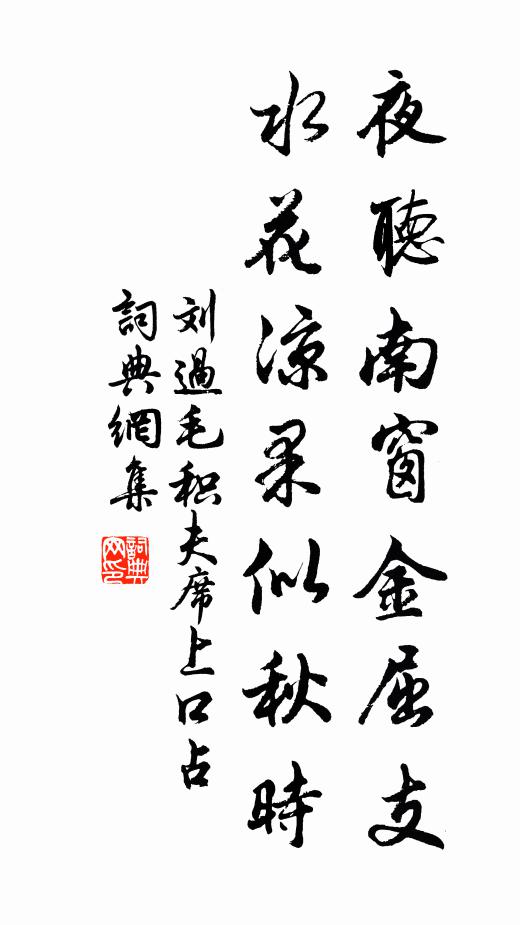 夜聽南窗金屈支
水花涼柔似秋時
刘過毛积夫席上口占
詞典網集
詞典網印